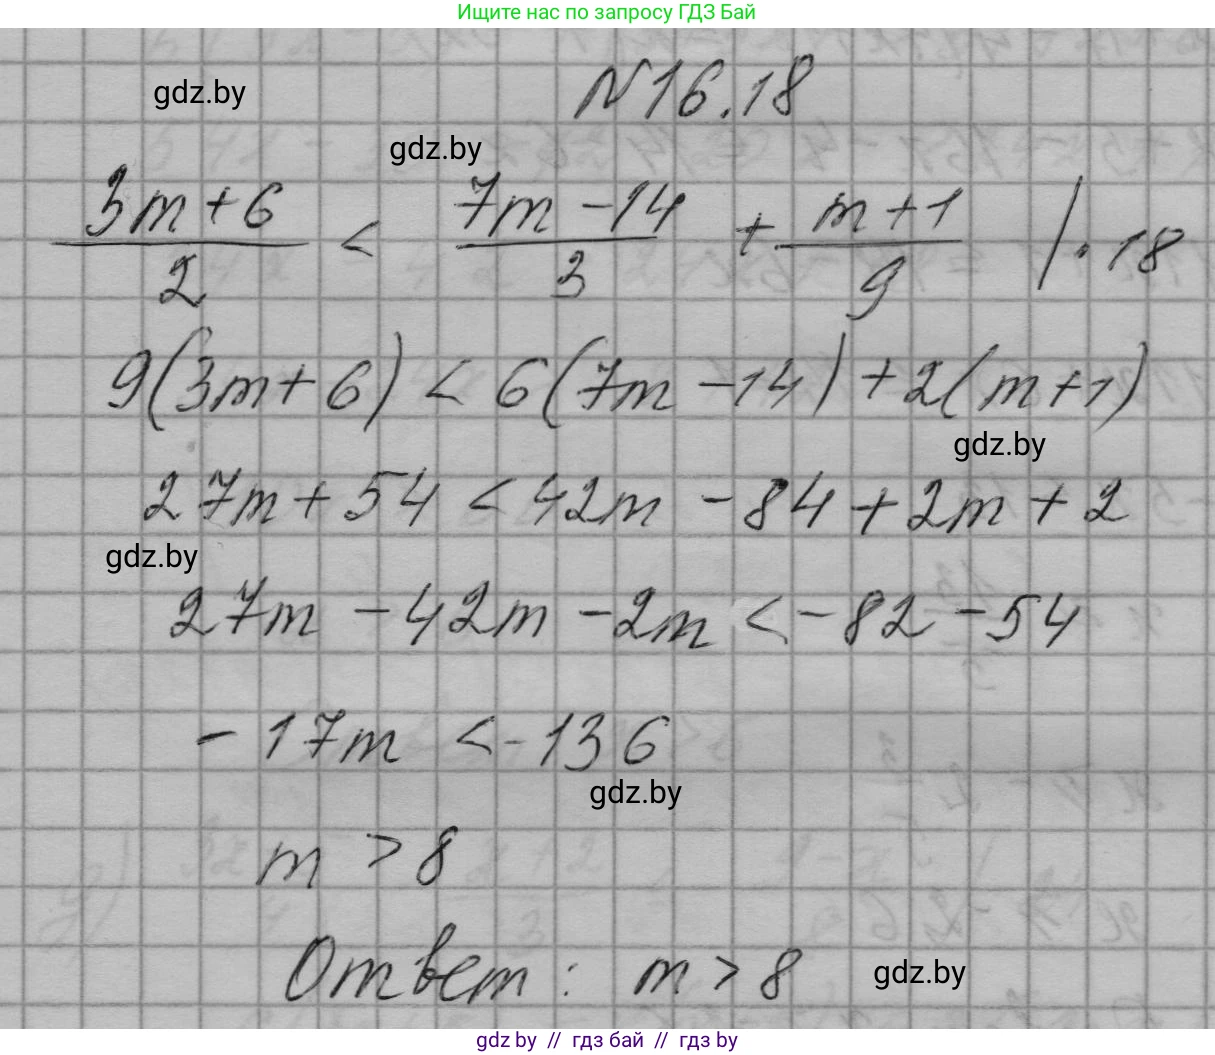 Ищите нас по запросу ГДЗ Бай
gdz.by
N16.18
gdz.by
(3m+6)/2 < (7m-14)/3 + (m+1)/9 |·18
9(3m+6) < 6(7m-14)+2(m+1)
gdz.by
27m+54 < 42m-84+2m+2
gdz.by
27m-42m-2m<-82-54
-17m <-136
gdz.by
m > 8
Ответ: m > 8
gdz.by
gdz by // гдз бай // гдз by